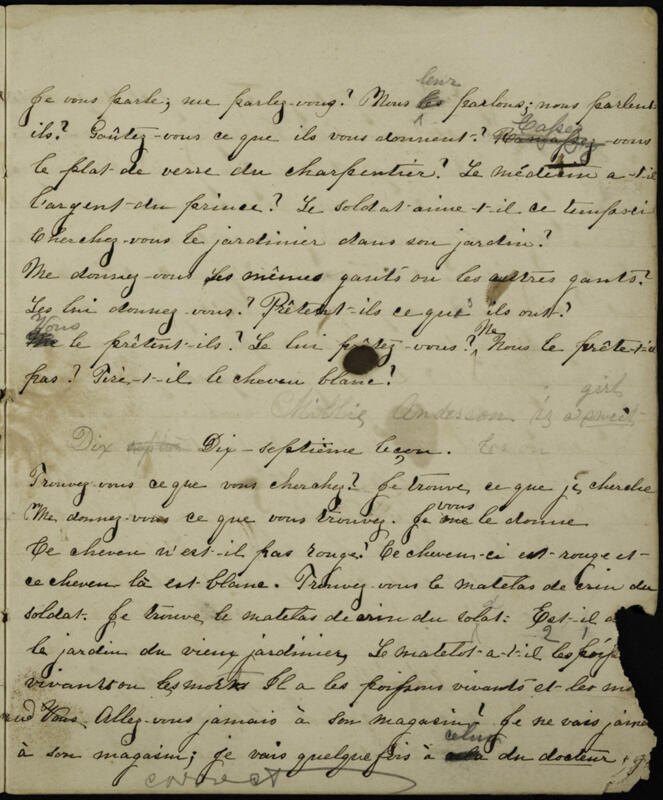 leur
Je vous parle; me parlez-vous? Nous les parlons; nous parlent-
ils? Goûtez-vous ce que ils vous donnent? Cassez -vous
le plat de verre du charpentier? Le médecin a-t-il
l'argent du prince? Le soldat aime-t-il ce temps-ci
Cherchez-vous le jardinier dans son jardin?
Me donnez-vous les mêmes gants ou les autres gants?
Les lui donnez-vous? Prêtent-ils ce que ils ont?
Vous le prêtent-ils? Le lui prêtez-vous? Ne Nous le prête-t-il
pas? Tire-t-il le cheveu blanc?
girl
Millie Anderson is a sweet
Dix Dix-septième leçon.
Trouvez-vous ce que vous cherchez? Je trouve, ce que je, cherche
Me donnez-vous ce que vous trouvez. Je me vous le donne
Ce cheveu n'est-il pas rouge? Ce cheveu-ci est rouge et
ce cheveu là est blanc. Trouvez-vous le matelas de crin du
soldat. Je trouve, le matelas de crin du solat: Est-il
le jardin du vieux jardinier, Le matelot a-t-il les
vivants ou les morts Il a les poissons vivants et les
Vous Allez-vous jamais à son magasin? Je ne vais
à son magasin; je vais quelquefois à celui du docteur,
correct